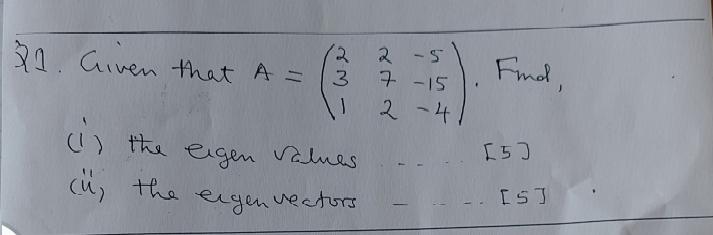 Q1. Given that A = (2 2 -5
3 7 -15
1 2 -4). Find,
(i) the eigen values - - - [5]
(ii) the eigenvectors - - - - [5]